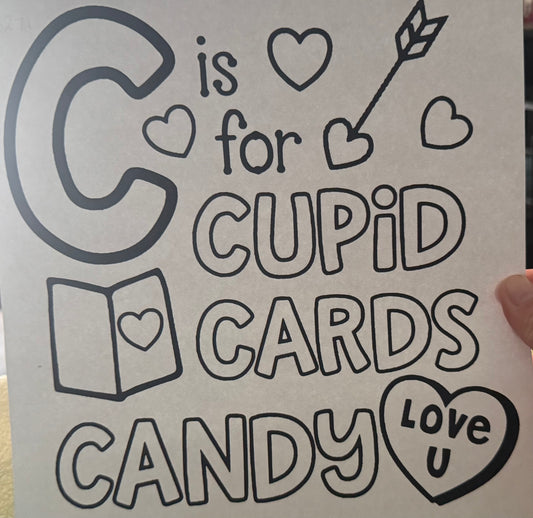 C is
for
CUPiD
CARDS
CANDY
LOVe
U